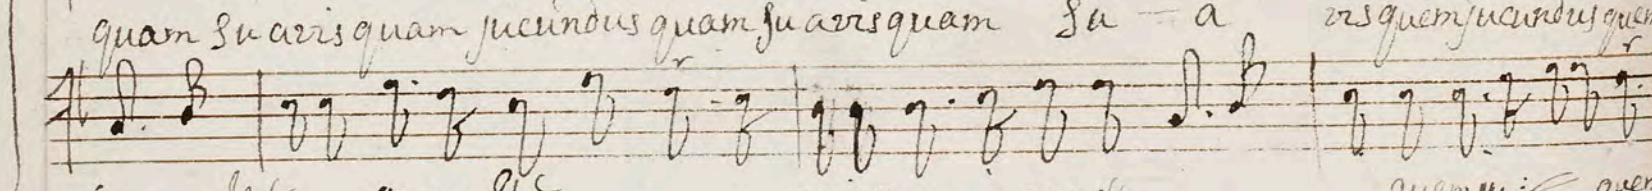 quam suavis quam jucundus quam suavis quam su - a vis quem jucundus quem